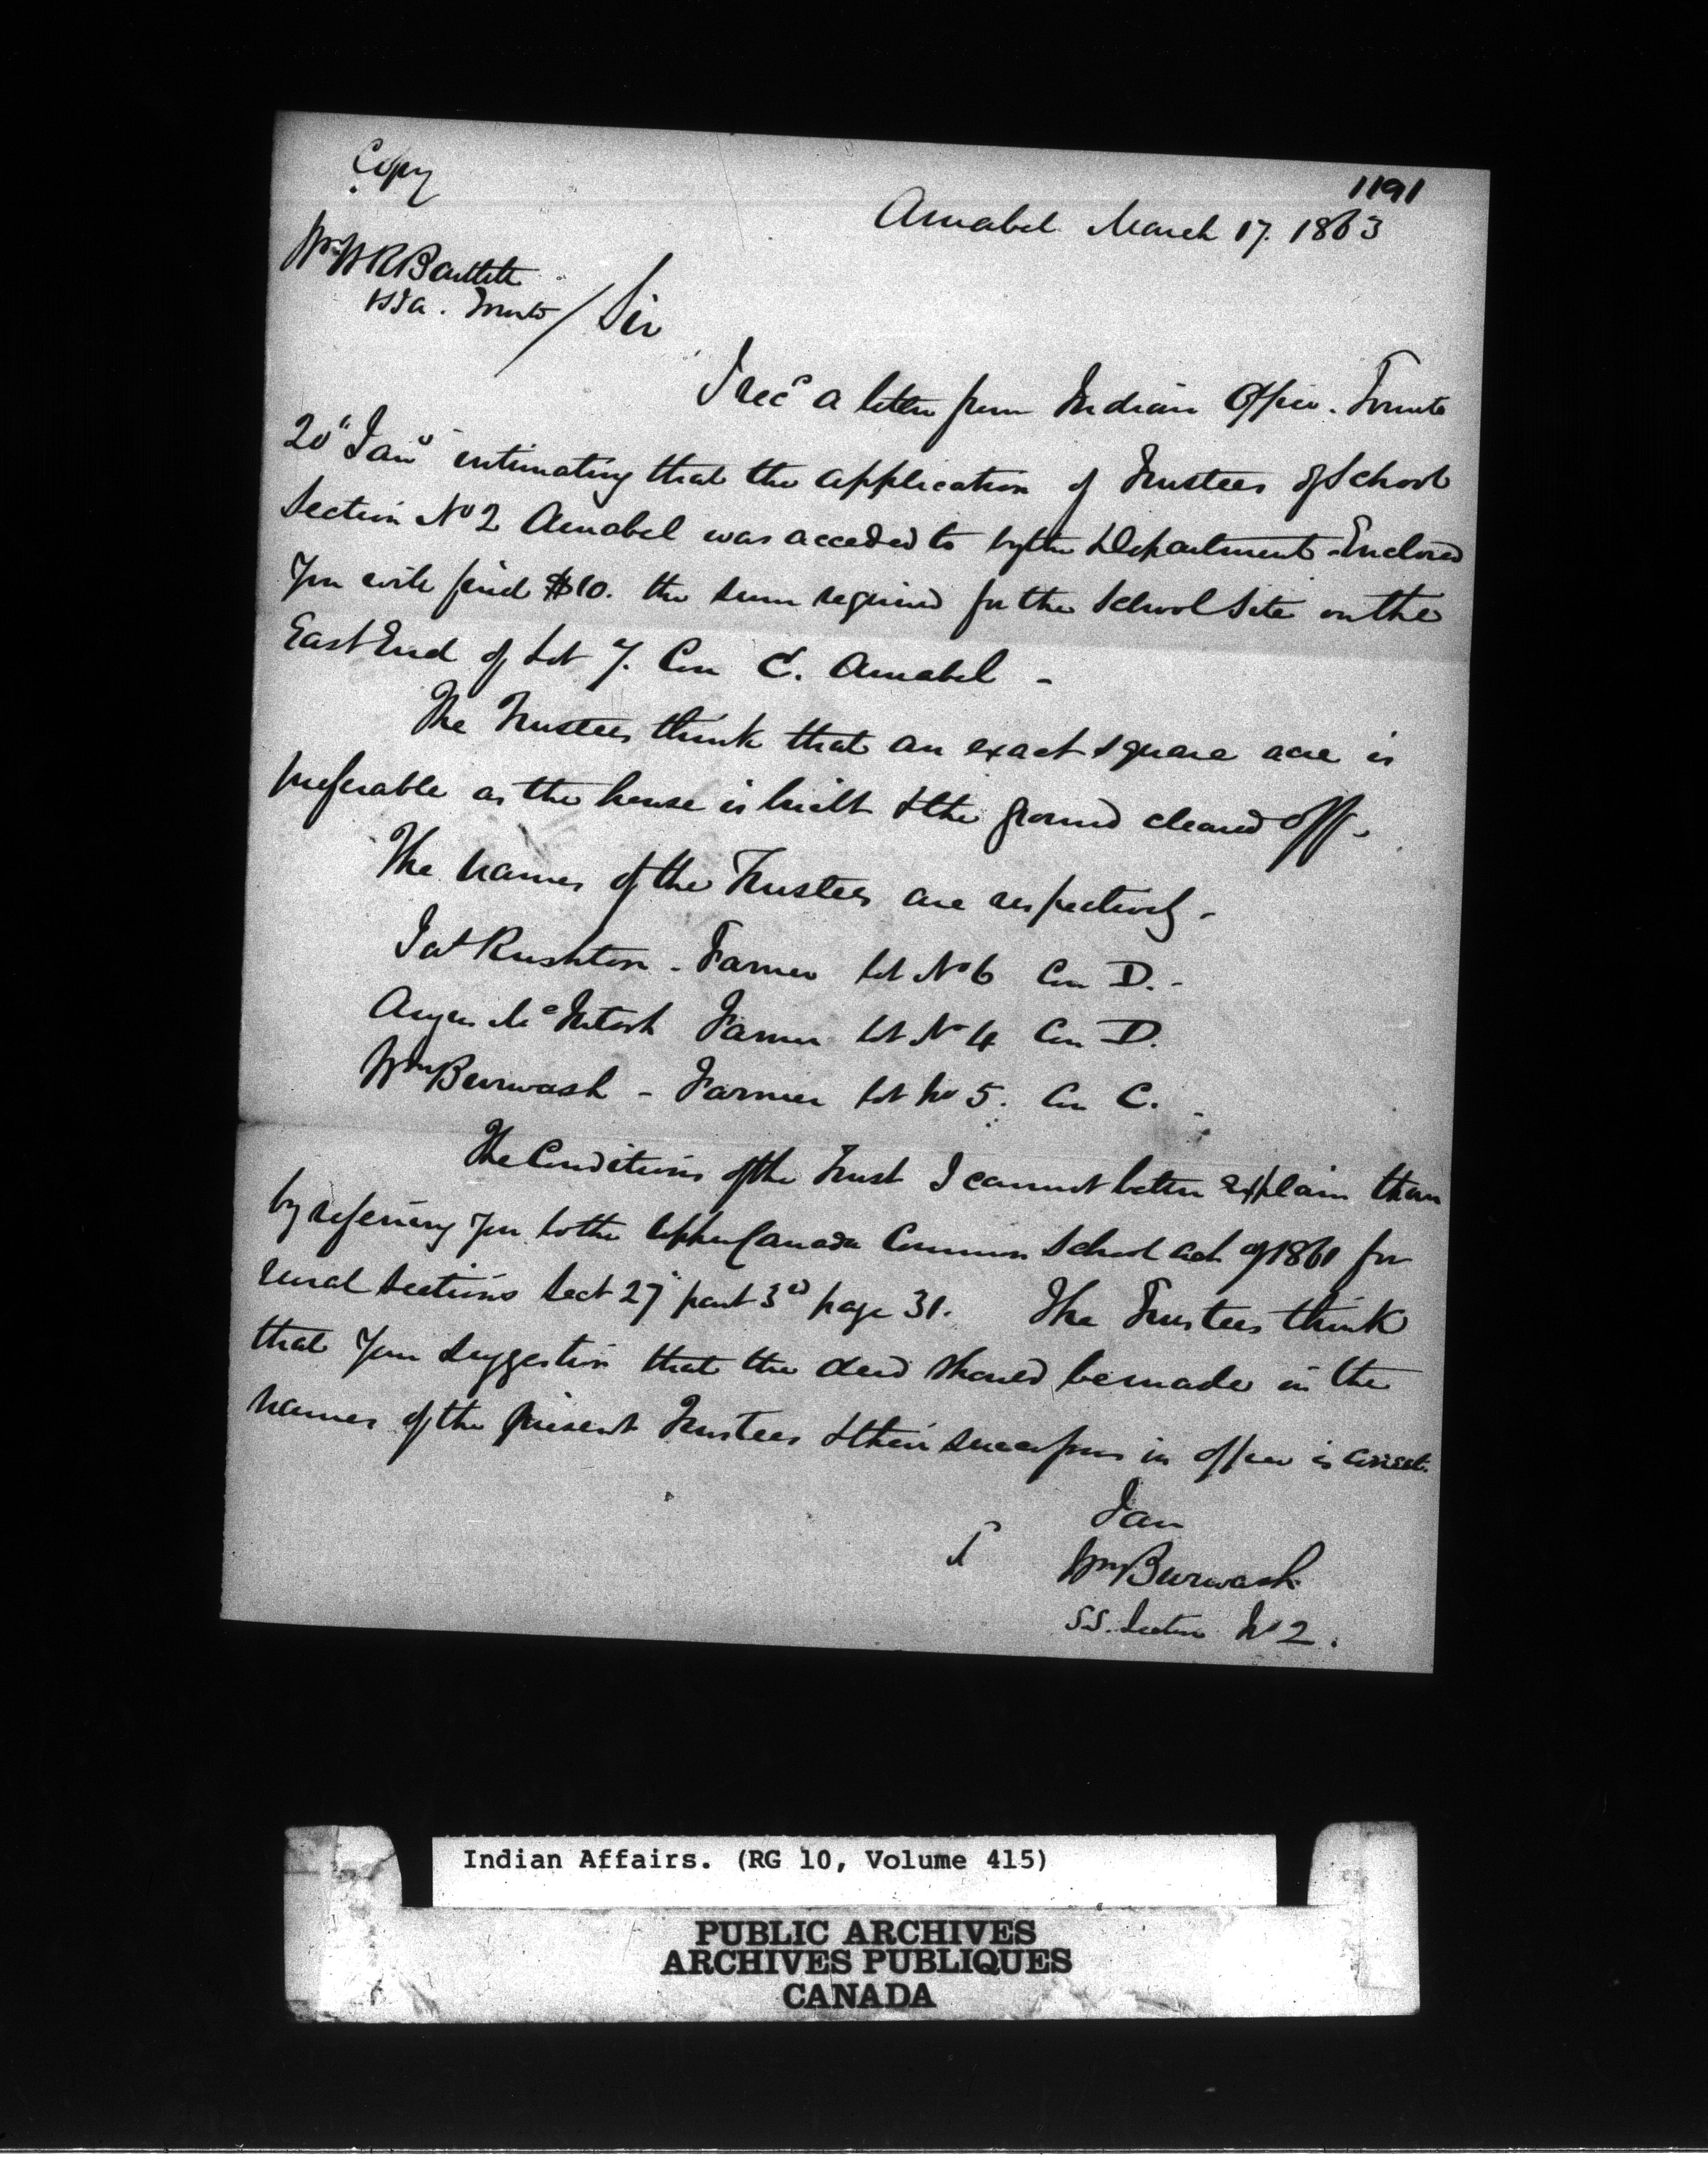 Copy
1191
Amabel March 17. 1863
Mr W R Bartlett
VSIA. Toronto / Sir
I recd a letter from Indian Office. Toronto
20" Jany intimating that the application of Trustees of School
Section No 2 Amabel was acceded to by the Department - Enclosed
you will find $10. the sum required for the School Site on the
East End of Lot 7. Con C. Amabel -
The Trustees think that an exact square acre is
preferable as the house is built & the ground cleared off.
The names of the Trustees are respectively -
Jas Rushton - Farmer Lot No 6 Con D. -
Angus McIntosh Farmer Lot No 4 Con D.
Wm Burwash - Farmer Lot No 5. Con C. -
The Conditions of the Trust I cannot better explain than
by refering you to the Upper Canada Common School Act of 1861 for
rural sections Sect 27" part 3d page 31. The Trustees think
that your suggestion that the deed should be made in the
names of the present Trustees & their successors in office is correct.
I am
Wm Burwash
S.S. Section No 2.
Indian Affairs. (RG 10, Volume 415)
PUBLIC ARCHIVES
ARCHIVES PUBLIQUES
CANADA